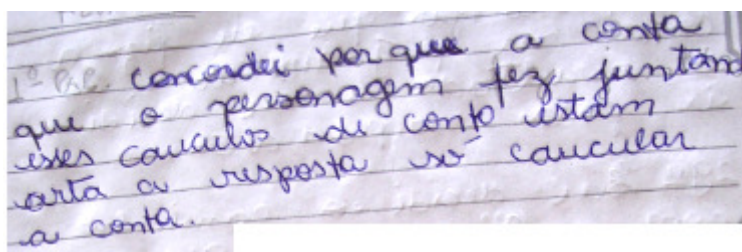 1º P.R.E. concordei por que a conta
que o personagem fez juntan
esses cauculos de conto istam
arta a resposta só caucular
a conta.